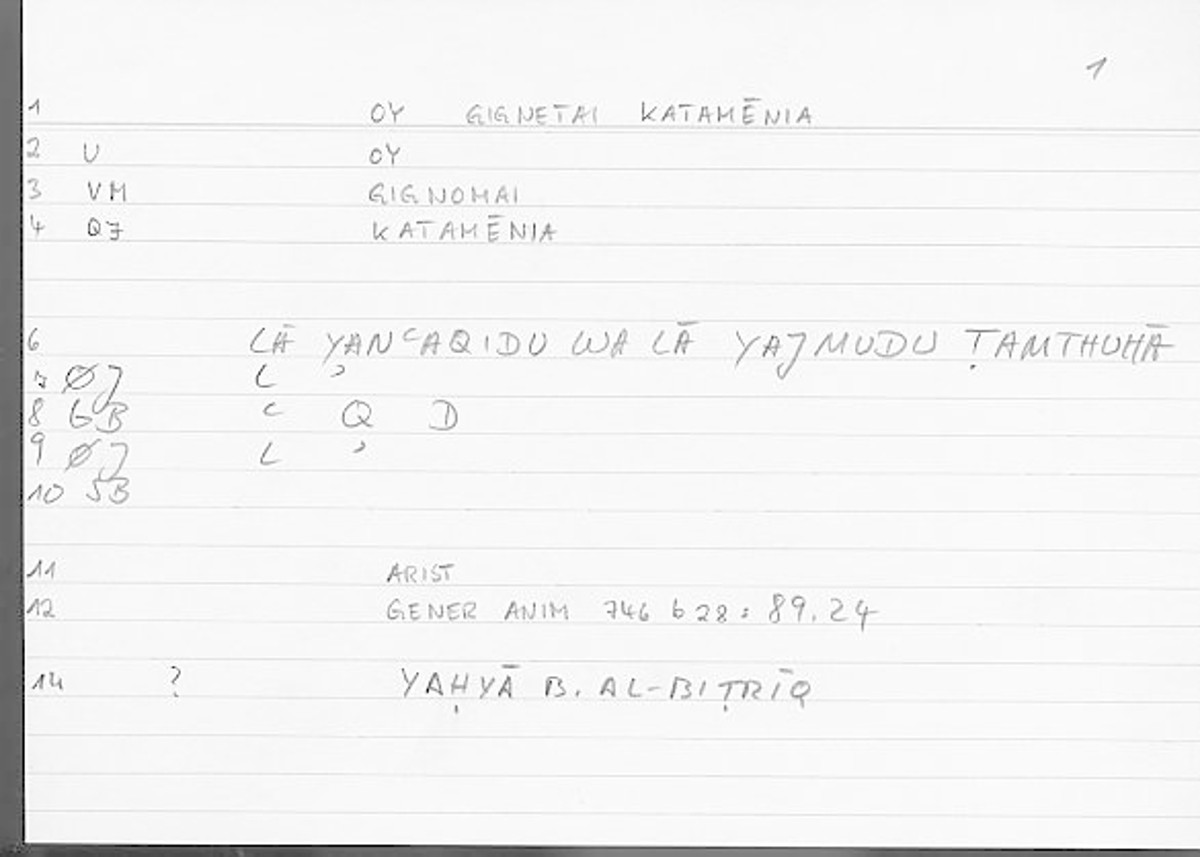 1
1 OY GIGNETAI KATAMĒNIA
2 U OY
3 VM GIGNOMAI
4 QJ KATAMĒNIA
6 LĀ YANᶜAQIDU WA LĀ YAJMUDU ṬAMTHUHĀ
7 ØJ L ʾ
8 GB ᶜ Q D
9 ØJ L ʾ
10 5B
11 ARIST
12 GENER ANIM 746 b 28 : 89.24
14 ? YAḤYĀ B. AL-BIṬRĪQ